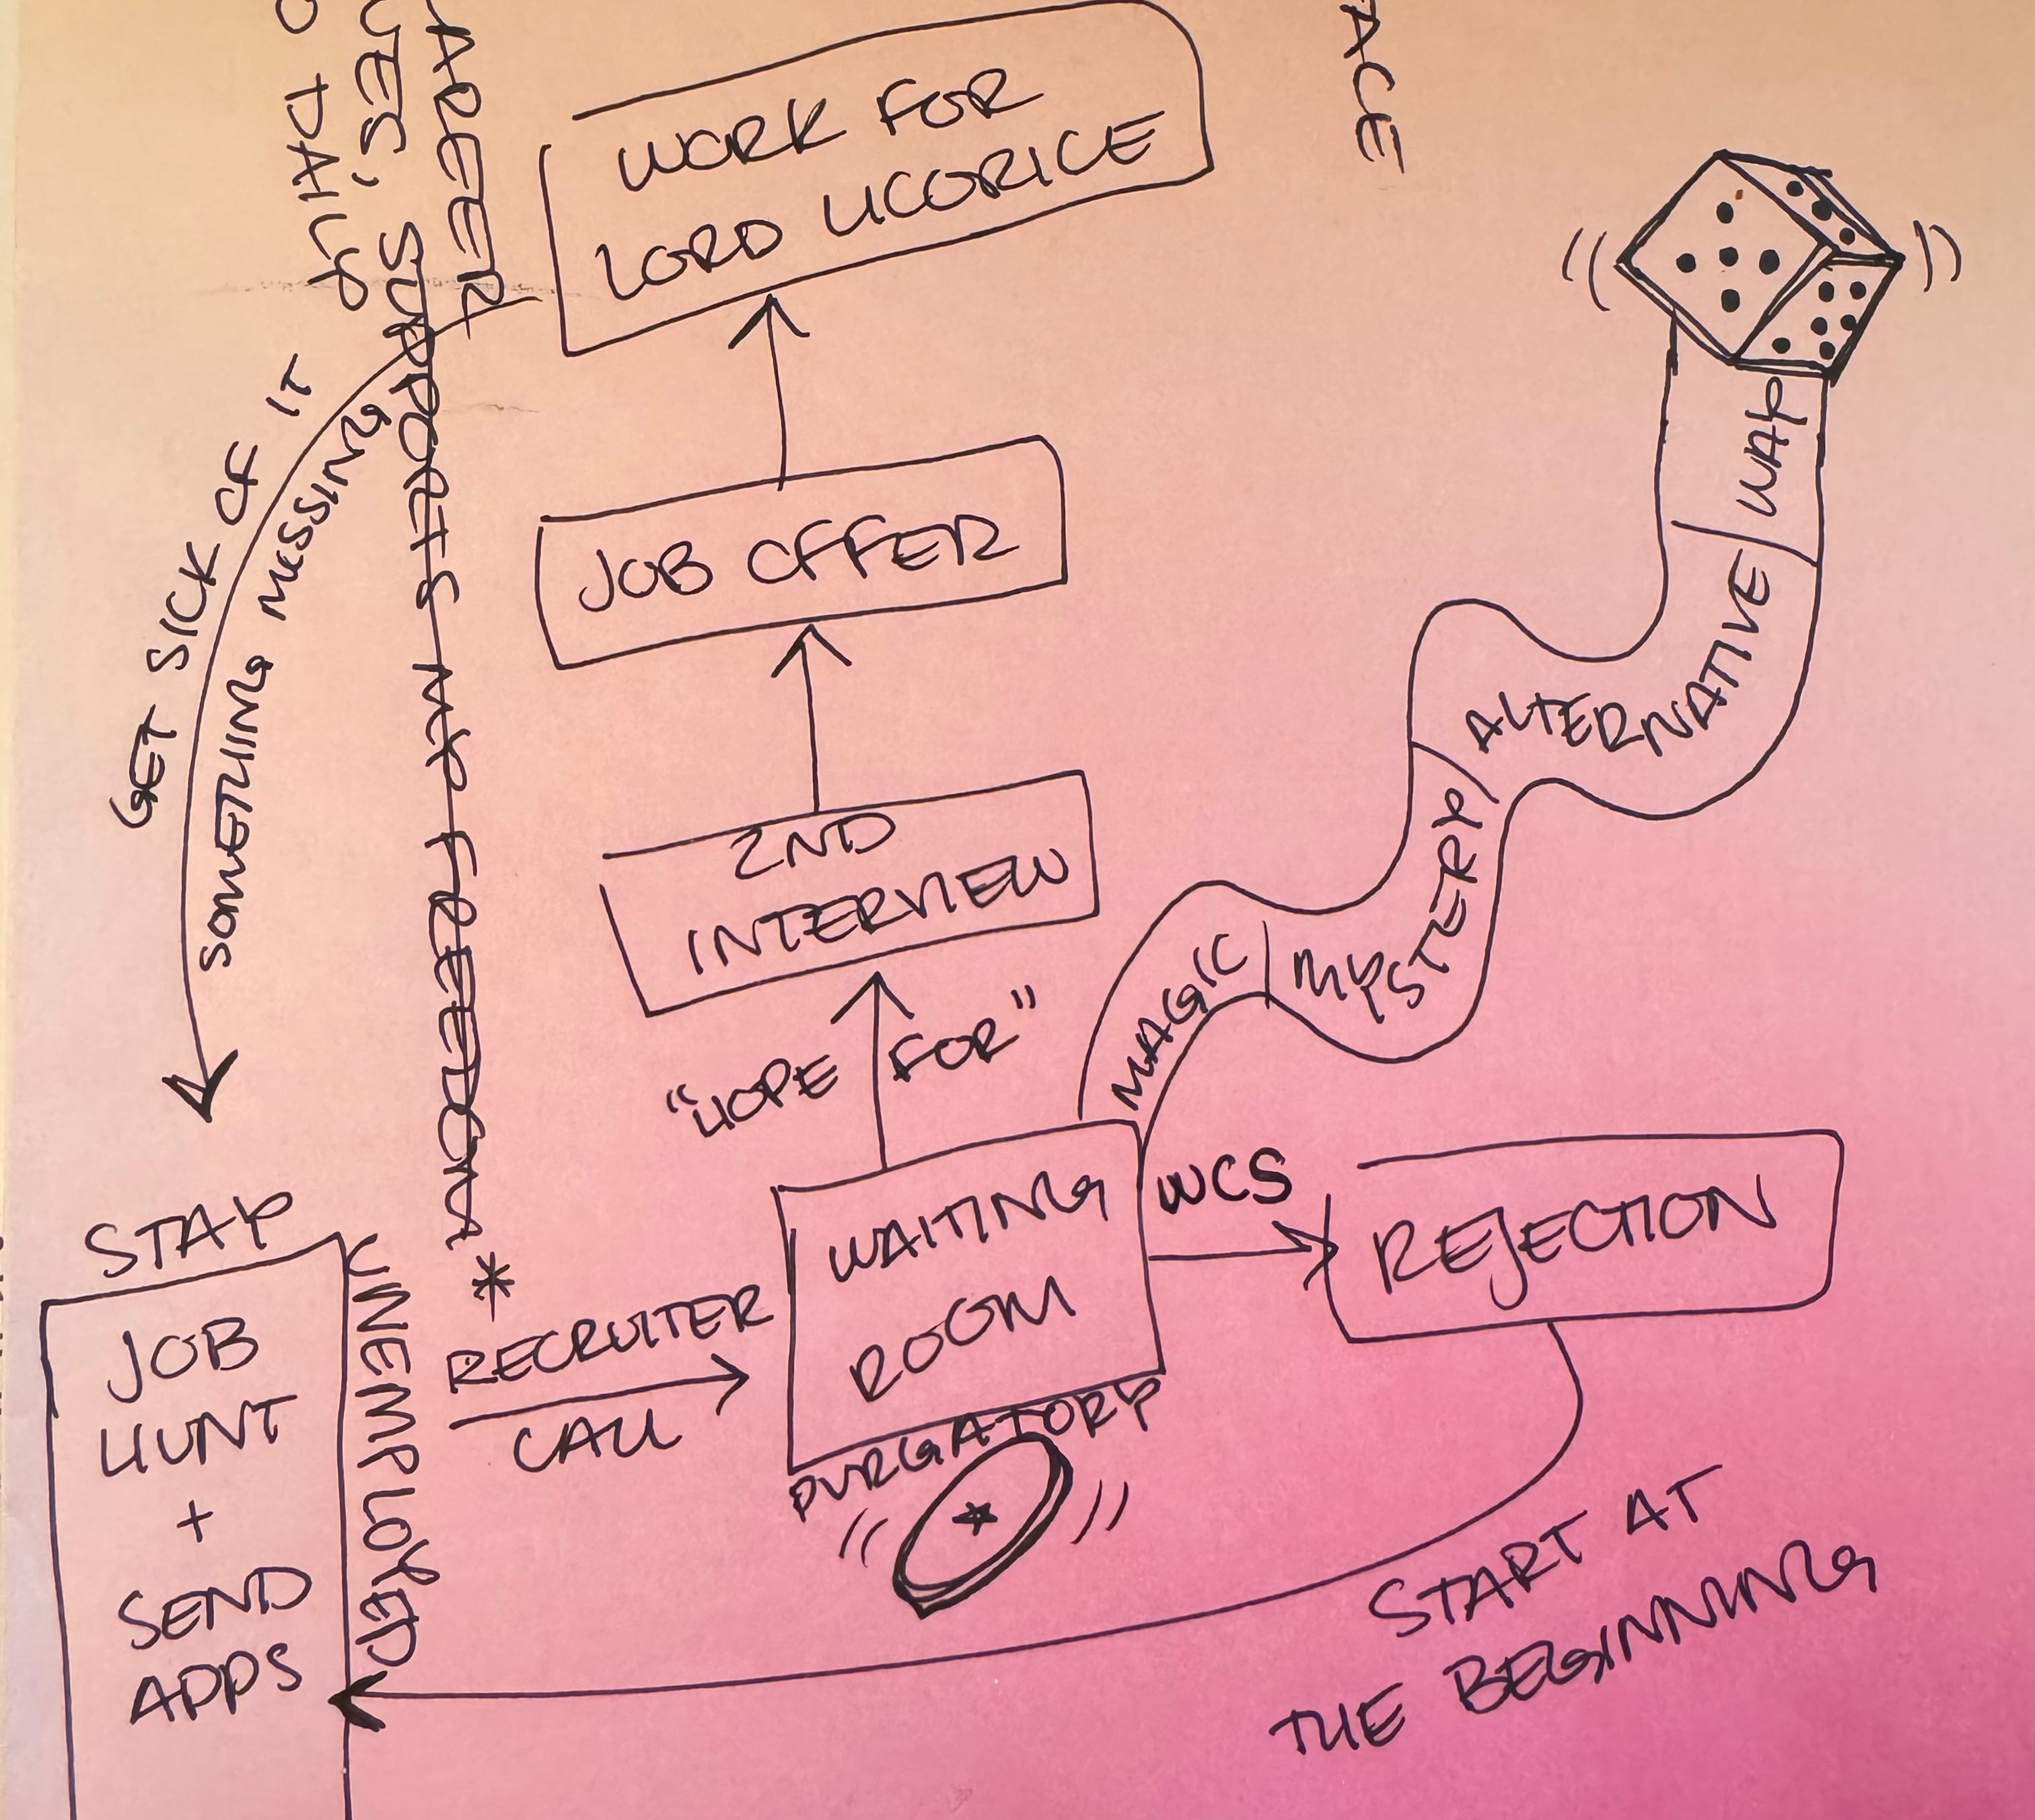 WORK FOR
LORD LICORICE
JOB OFFER
2ND
INTERVIEW
"HOPE FOR"
WAITING
ROOM
PURGATORY
RECRUITER
CALL
WCS
REJECTION
START AT
THE BEGINNING
MAGIC
MYSTERY
ALTERNATIVE
WAY
GET SICK OF IT
SOMETHING MISSING
SUPPORTS MY FREEDOM *
STAY
UNEMPLOYED
JOB
HUNT
+
SEND
APPS